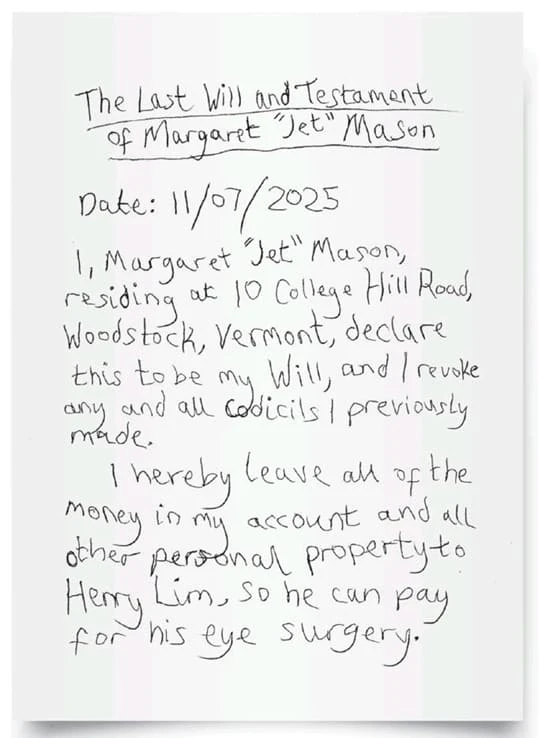 The Last Will and Testament
of Margaret "Jet" Mason
Date: 11/07/2025
I, Margaret "Jet" Mason,
residing at 10 College Hill Road,
Woodstock, Vermont, declare
this to be my Will, and I revoke
any and all codicils I previously
made.
I hereby leave all of the
money in my account and all
other personal property to
Henry Lim, so he can pay
for his eye surgery.